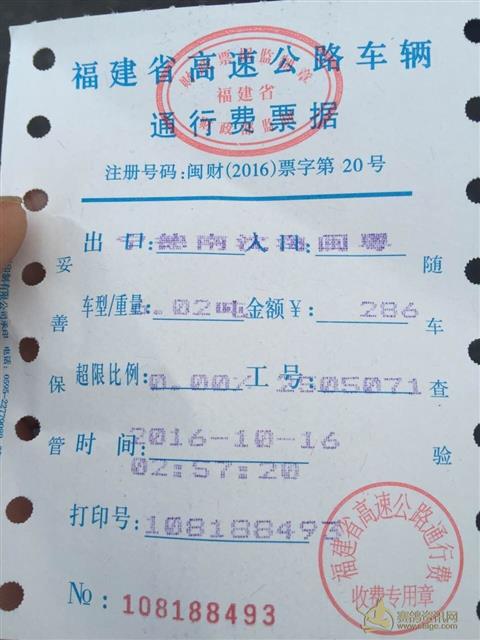 福建省高速公路车辆
通行费票据
福建省
注册号码:闽财(2016)票字第20号
出口: 入口: 闽粤
车型/重量: .02吨 金额¥: 286
超限比例: 0.00% 工号: 2505071
时间: 2016-10-16
02:57:20
打印号: 108188493
№: 108188493
妥善保管
随车查验
福建省高速公路通行费
收费专用章
赛鸽资讯网